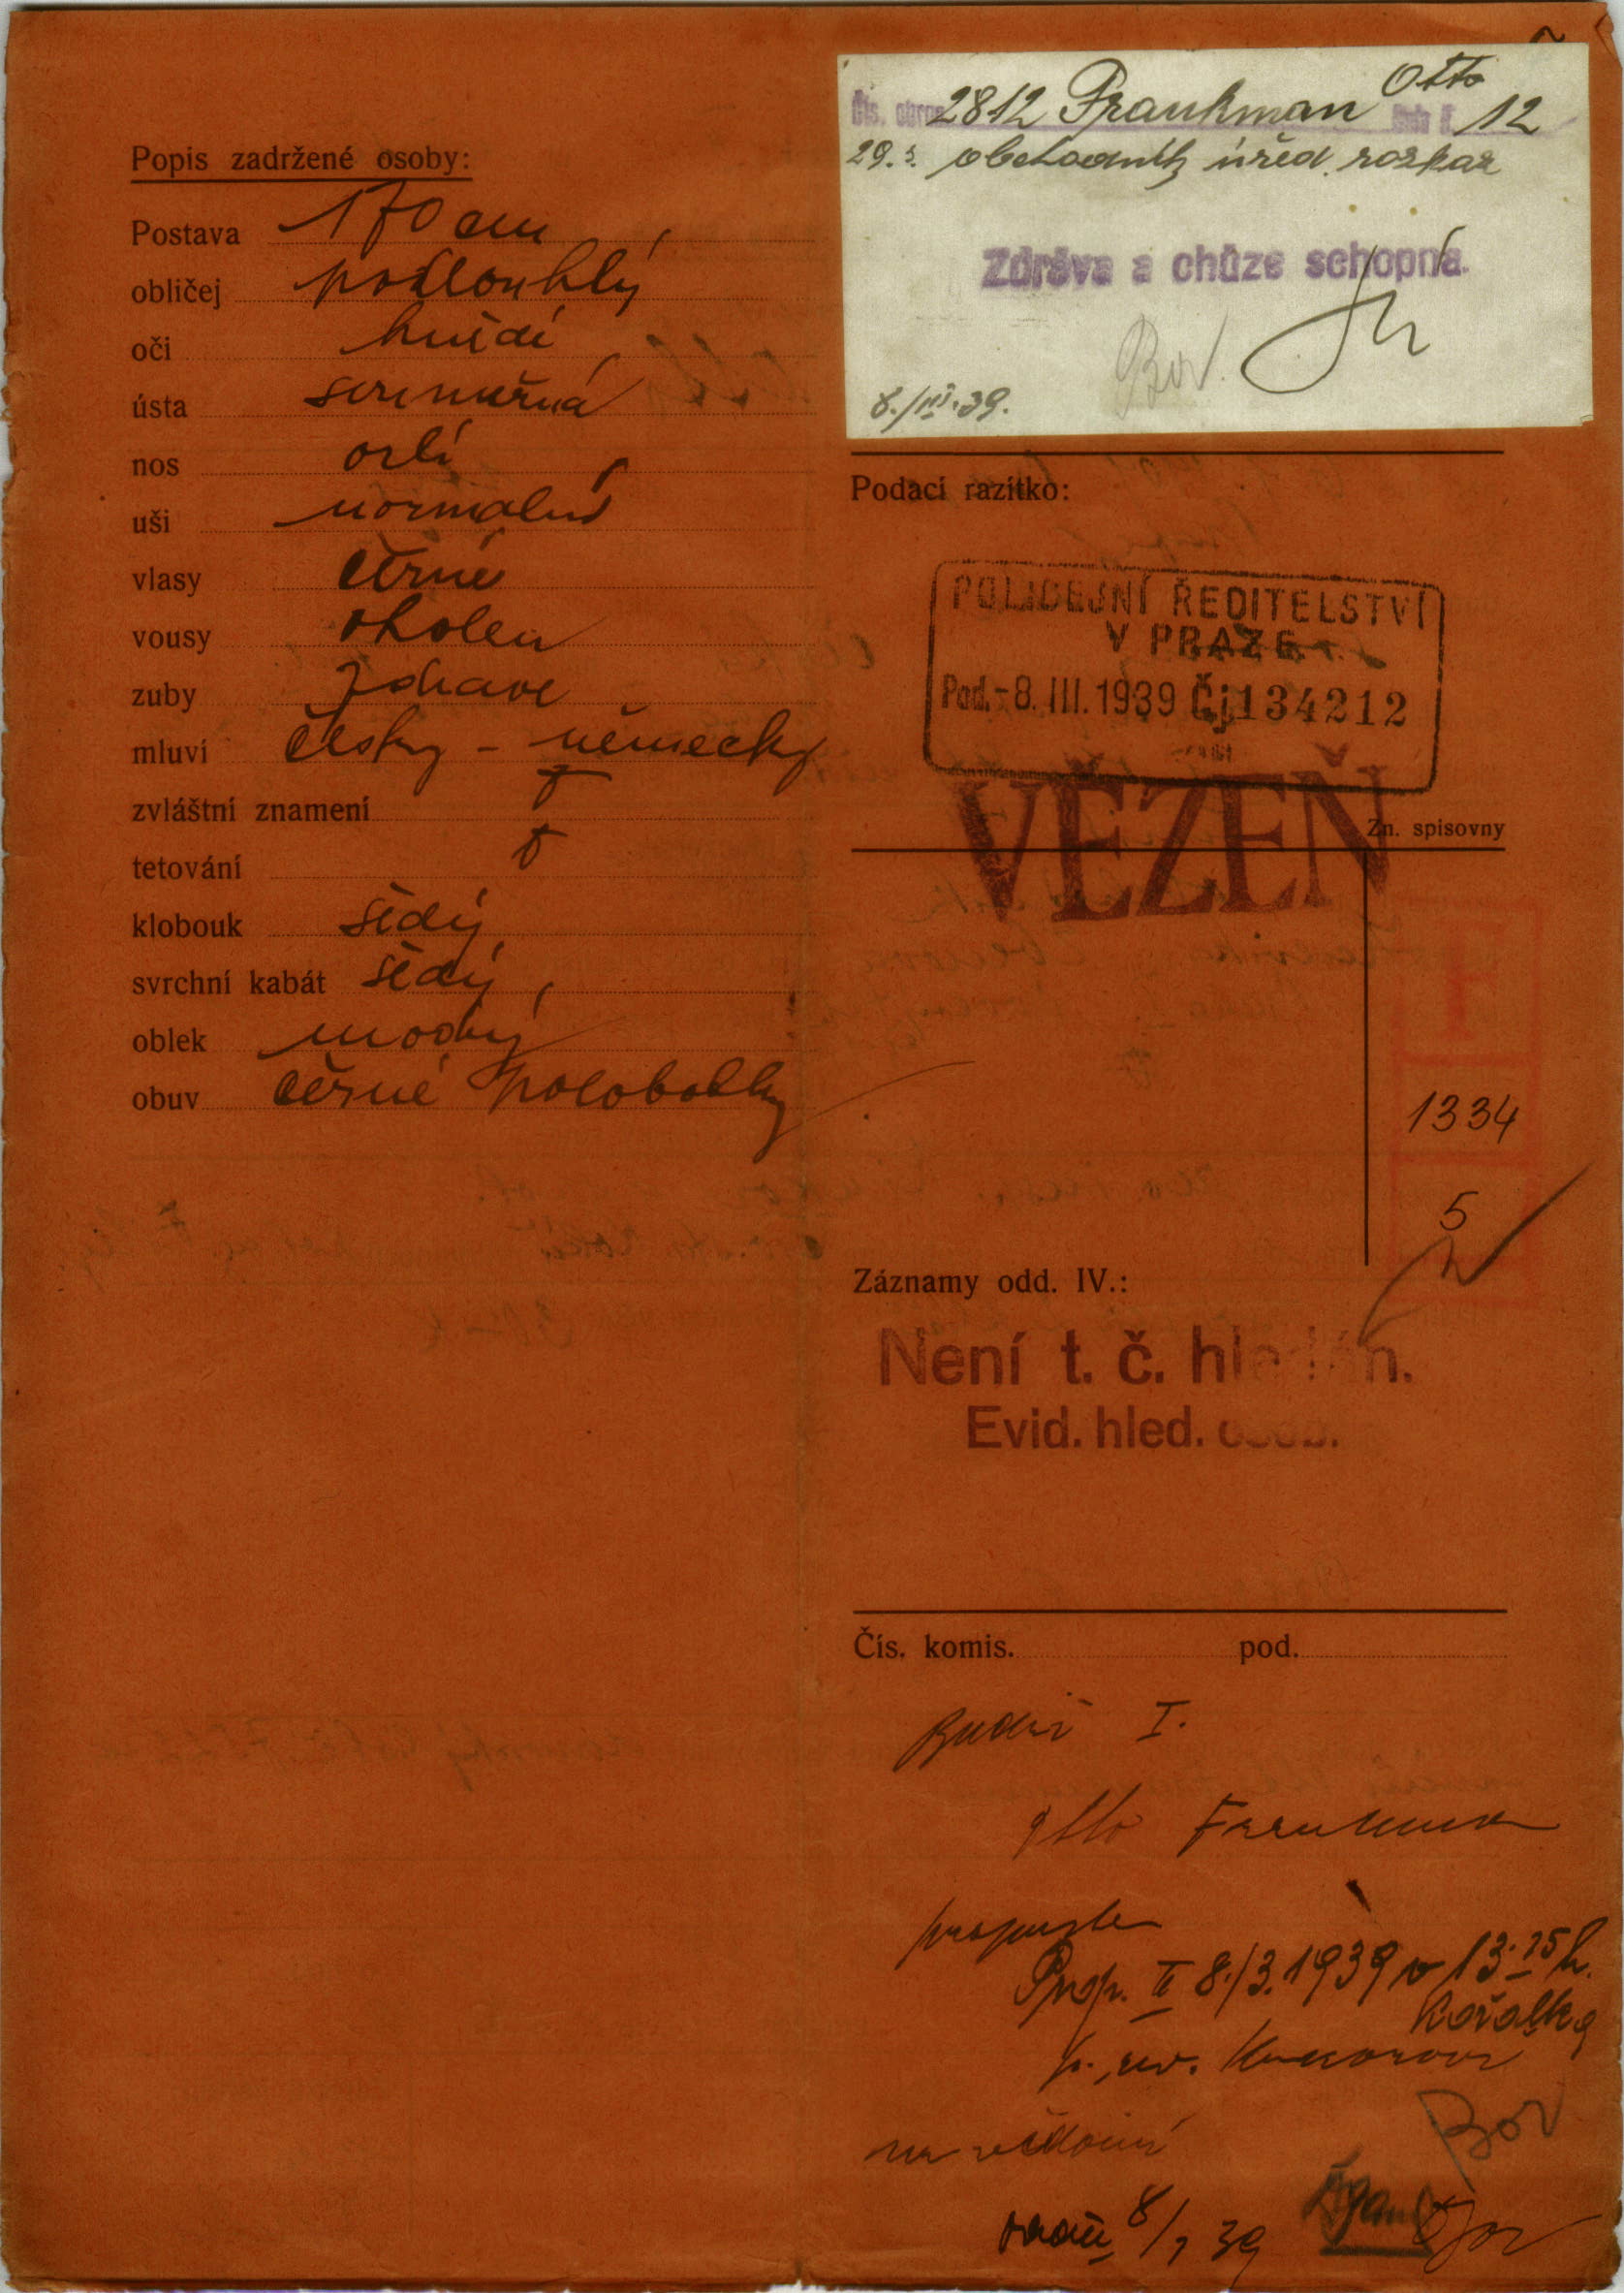 Popis zadržené osoby:
Postava 170 cm
obličej podlouhlý
oči hnědé
ústa souměrná
nos orlí
uši normalní
vlasy černé
vousy oholen
zuby zdravé
mluví česky - německy
zvláštní znamení
tetování
klobouk šedý
svrchní kabát šedý,
oblek modrý
obuv černé polobotky
Čís. 2812 Frankman Otto 12
29. obchodník úřed. rozkaz
Zdráva a chůze schopna.
Bor.
8./III.39.
Podací razítko:
POLICEJNÍ ŘEDITELSTVÍ
V PRAZE
Pod. -8. III. 1939 Čj 134212
VĚZEŇ
Zn. spisovny
F
1334
5
Záznamy odd. IV.:
Není t. č. hledán.
Evid. hled. osob.
Čís. komis. pod.
I.
Otto Frankman
propuštěn
Prop. II 8./3. 1939 v 13.25 h.
Kořalka
na vědomí
Bor
8/3 39